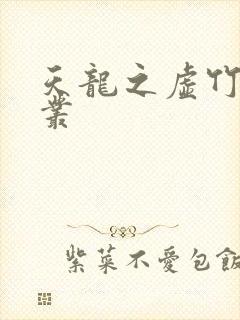 天龍之虛竹
叢
紫菜不愛包飯